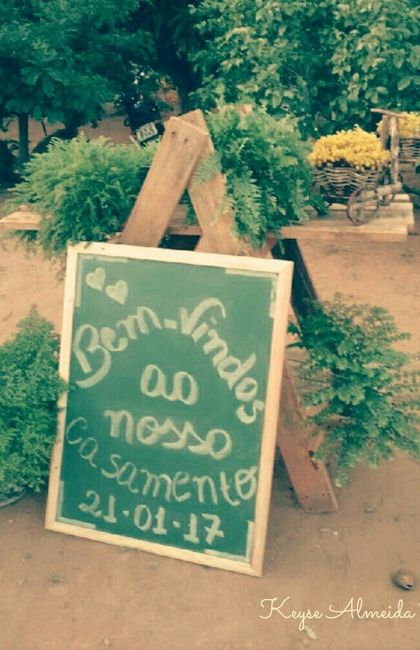 Bem-Vindos
ao
nosso
casamento
21-01-17
Keyse Almeida